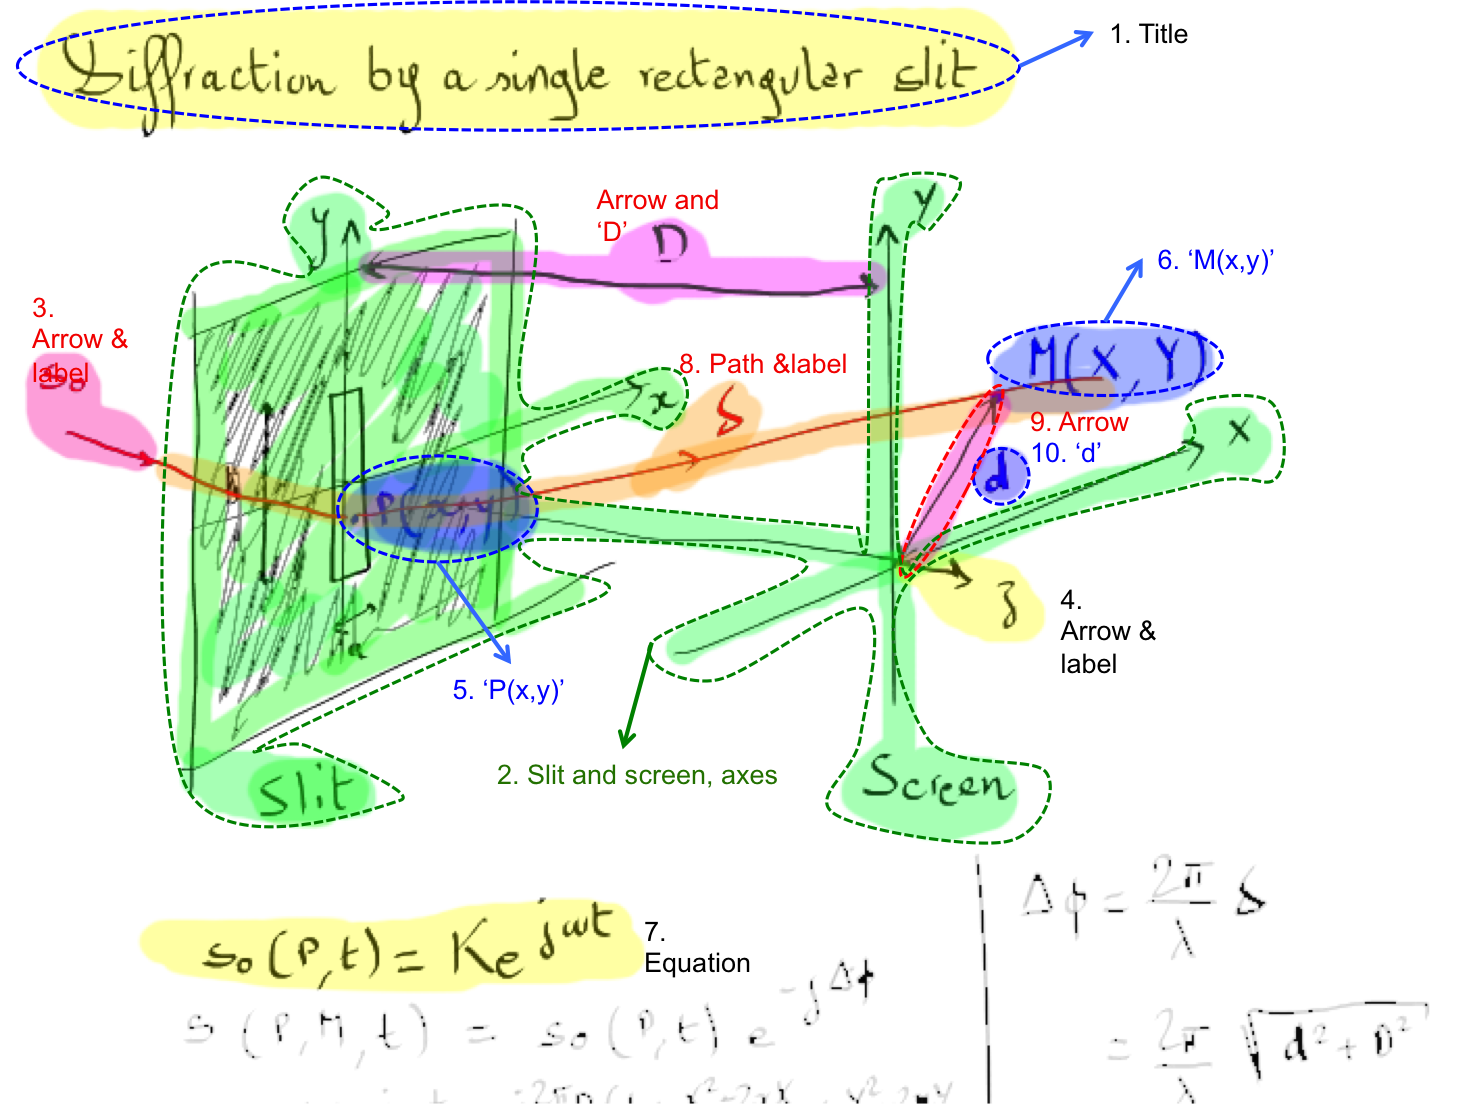 Diffraction by a single rectangular slit
1. Title
y
Arrow and
‘D’
D
y
6. ‘M(x,y)’
3.
Arrow &
label
So
8. Path &label
M(X, Y)
δ
x
9. Arrow
10. ‘d’
X
d
P(x,y)
z
4.
Arrow &
label
a
5. ‘P(x,y)’
2. Slit and screen, axes
Slit
Screen
7.
Equation
s₀(P,t) = K e^jωt
Δϕ = 2π/λ δ
s(P,M,t) = s₀(P,t) e^-jΔϕ
= 2π/λ √d²+D²